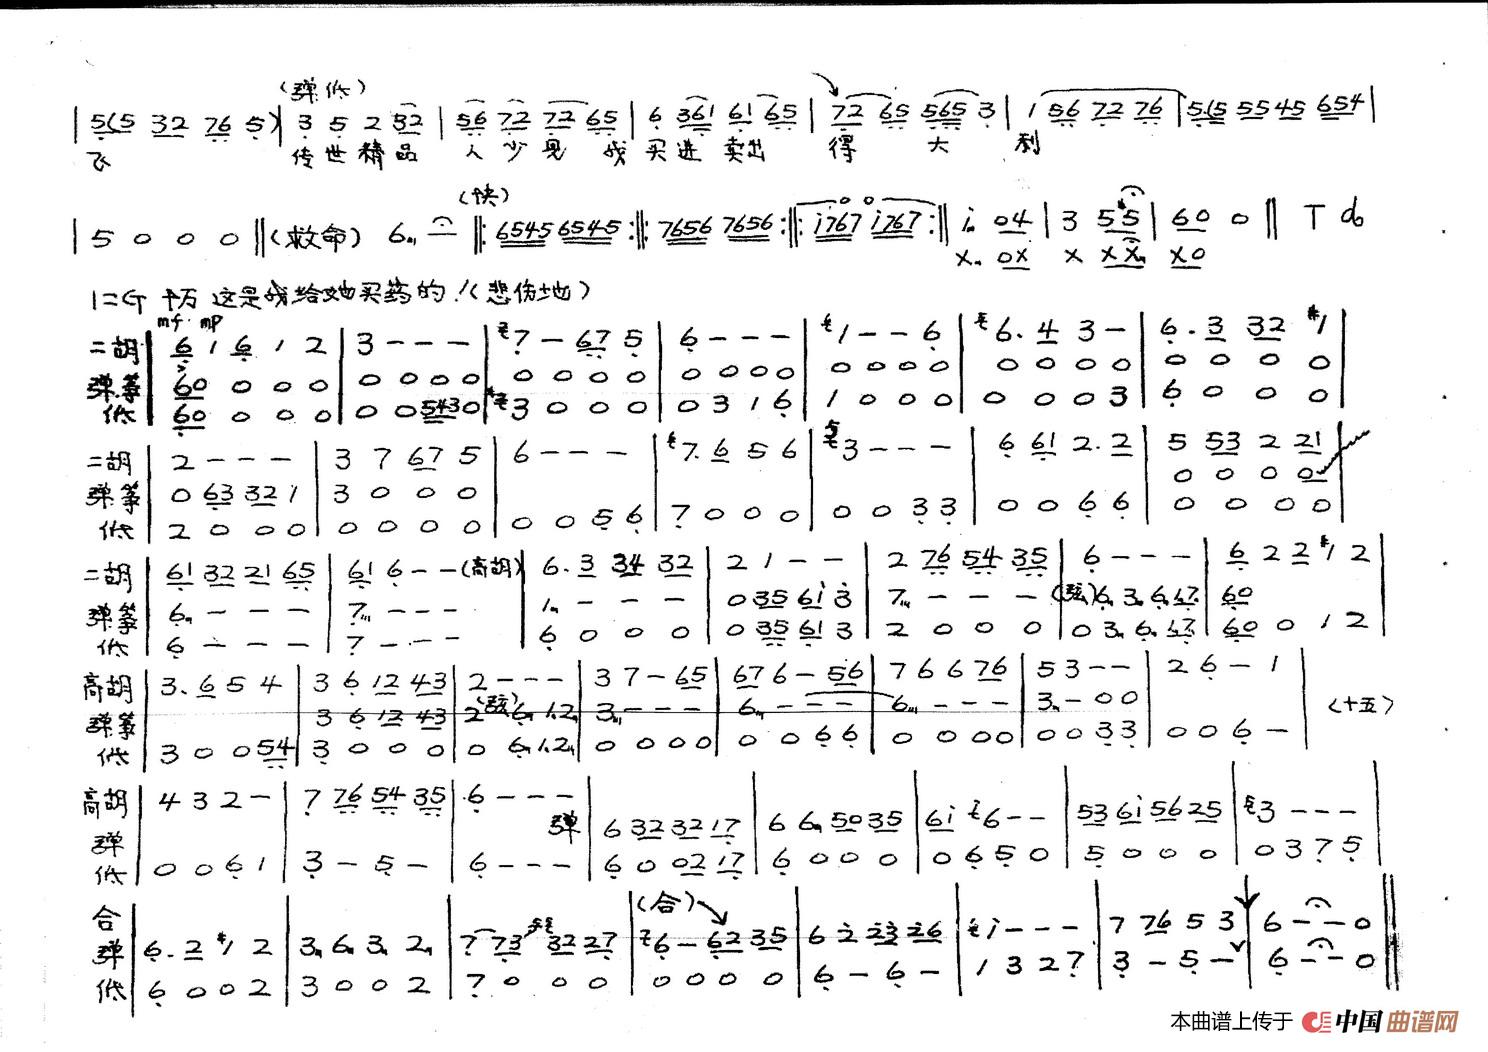 (弹低)
| 5(5 32 76 5) | 3 5 2 32 | 56 72 72 65 | 6 361 61 65 | 72 65 565 3 | 1 56 72 76 | 5(5 5545 654 |
飞 传世精品 人少见 我买进卖出 得 大 利
(快)
| 5 0 0 0 ‖ (救命) 6 - ‖: 6545 6545 :‖: 7656 7656 :‖: i767 i767 :‖ i 04 | 3 55 | 60 0 ‖ T do
X 0X X XX X0
1=G 千万 这是我给她买药的!(悲伤地)
mf mp
二胡 | 6 1 6 1 2 | 3 - - - | 7 - 67 5 | 6 - - - | 1 - - 6 | 6. 4 3 - | 6. 3 32 #1 |
弹筝 | 60 0 0 0 | 0 0 0 0 | 0 0 0 0 | 0 0 0 0 | 0 0 0 0 | 0 0 0 0 | 0 0 0 0 |
低 | 60 0 0 0 | 0 0 543 0 | 3 0 0 0 | 0 3 1 6 | 1 0 0 0 | 0 0 0 3 | 6 0 0 0 |
二胡 | 2 - - - | 3 7 67 5 | 6 - - - | 7. 6 5 6 | 3 - - - | 6 61 2. 2 | 5 53 2 21 |
弹筝 | 0 63 32 1 | 3 0 0 0 | 0 0 0 0 |
低 | 2 0 0 0 | 0 0 0 0 | 0 0 5 6 | 7 0 0 0 | 0 0 3 3 | 0 0 6 6 | 0 0 0 0 |
二胡 | 61 32 21 65 | 61 6 - - (高胡) | 6. 3 34 32 | 2 1 - - | 2 76 54 35 | 6 - - - | 6 2 2 #1 2 |
弹筝 | 6 - - - | 7 - - - | 1 - - - | 0 35 6i 3 | 7 - - - | (弦) 6 3 6 67 | 60
低 | 6 - - - | 7 - - - | 6 0 0 0 | 0 35 61 3 | 2 0 0 0 | 0 3 6 67 | 60 0 1 2 |
高胡 | 3. 6 5 4 | 3 6 12 43 | 2 - - - | 3 7 - 65 | 67 6 - 56 | 7 6 6 76 | 5 3 - - | 2 6 - 1 |
弹筝 | 3 6 12 43 | 2 (弦) 6 1 2 | 3 - - - | 6 - - - | 6 - - - | 3 - 0 0 | (十五)
低 | 3 0 0 54 | 3 0 0 0 | 0 6 1 2 | 0 0 0 0 | 0 0 6 6 | 0 0 0 0 | 0 0 3 3 | 0 0 6 - |
高胡 | 4 3 2 - | 7 76 54 35 | 6 - - - |
弹 弹 | 6 32 32 17 | 6 6 50 35 | 6i 6 - - | 53 6i 56 25 | 3 - - - |
低 | 0 0 6 1 | 3 - 5 - | 6 - - - | 6 0 02 17 | 6 0 0 0 | 0 6 5 0 | 5 0 0 0 | 0 3 7 5 |
合 (合)
弹 | 6. 2 #1 2 | 3 6 3 2 | 7 73 32 27 | 6 - 62 35 | 6 2 23 26 | i - - - | 7 76 5 3 | 6 - - 0 ‖
低 | 6 0 0 2 | 3 0 0 2 | 7 0 0 0 | 0 0 0 0 | 6 - 6 - | 1 3 2 7 | 3 - 5 - | 6 - - 0 ‖
本曲谱上传于 中国曲谱网